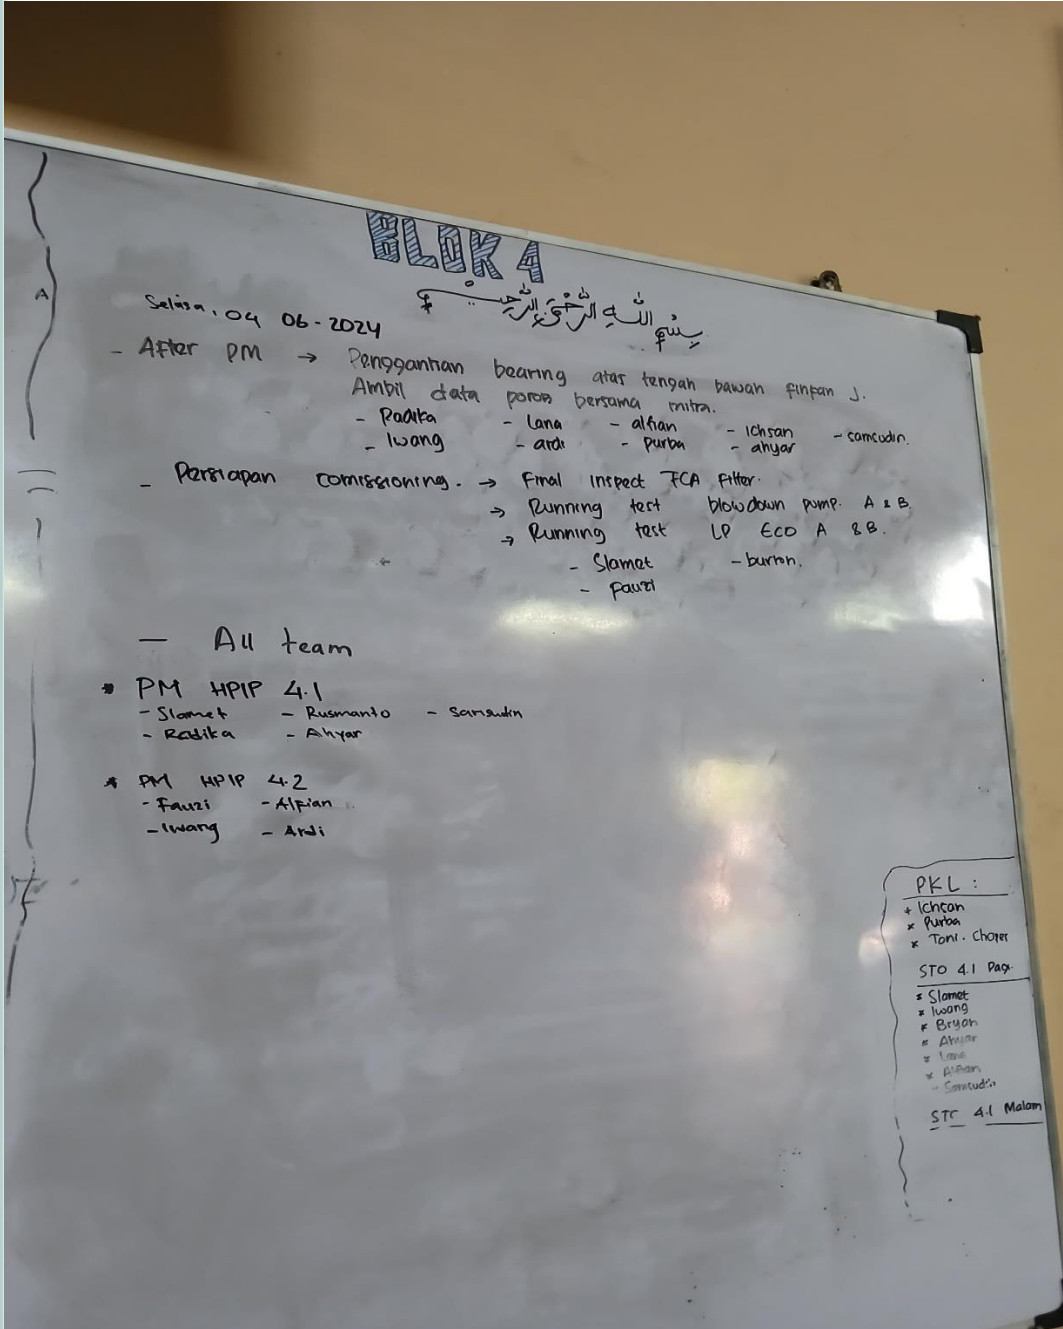 BLOK 4
بسم الله الرحمن الرحيم
A
Selasa, 04 06-2024
- After PM → Penggantian bearing atas tengah bawah finfan J.
Ambil data poros bersama mitra.
- Radika - lana - alfian - Ichsan - samsudin.
- Iwang - ardi - purba - ahyar
- Persiapan comissioning. → Final inspect FCA Filter.
→ Running test blowdown pump. A & B.
→ Running test LP Eco A & B.
- Slamet - burhan.
- Fauzi
- All team
* PM HPIP 4.1
- Slamet - Rusmanto - Samsudin
- Radika - Ahyar
* PM HPIP 4.2
- Fauzi - Alfian
- Iwang - Ardi
PKL :
* Ichsan
* Purba
* Toni.
STO 4.1 Pagi.
* Slamet
* Iwang
* Bryan
* Ahyar
* Lana
* Alfian
- Samsudin
4.1 Malam